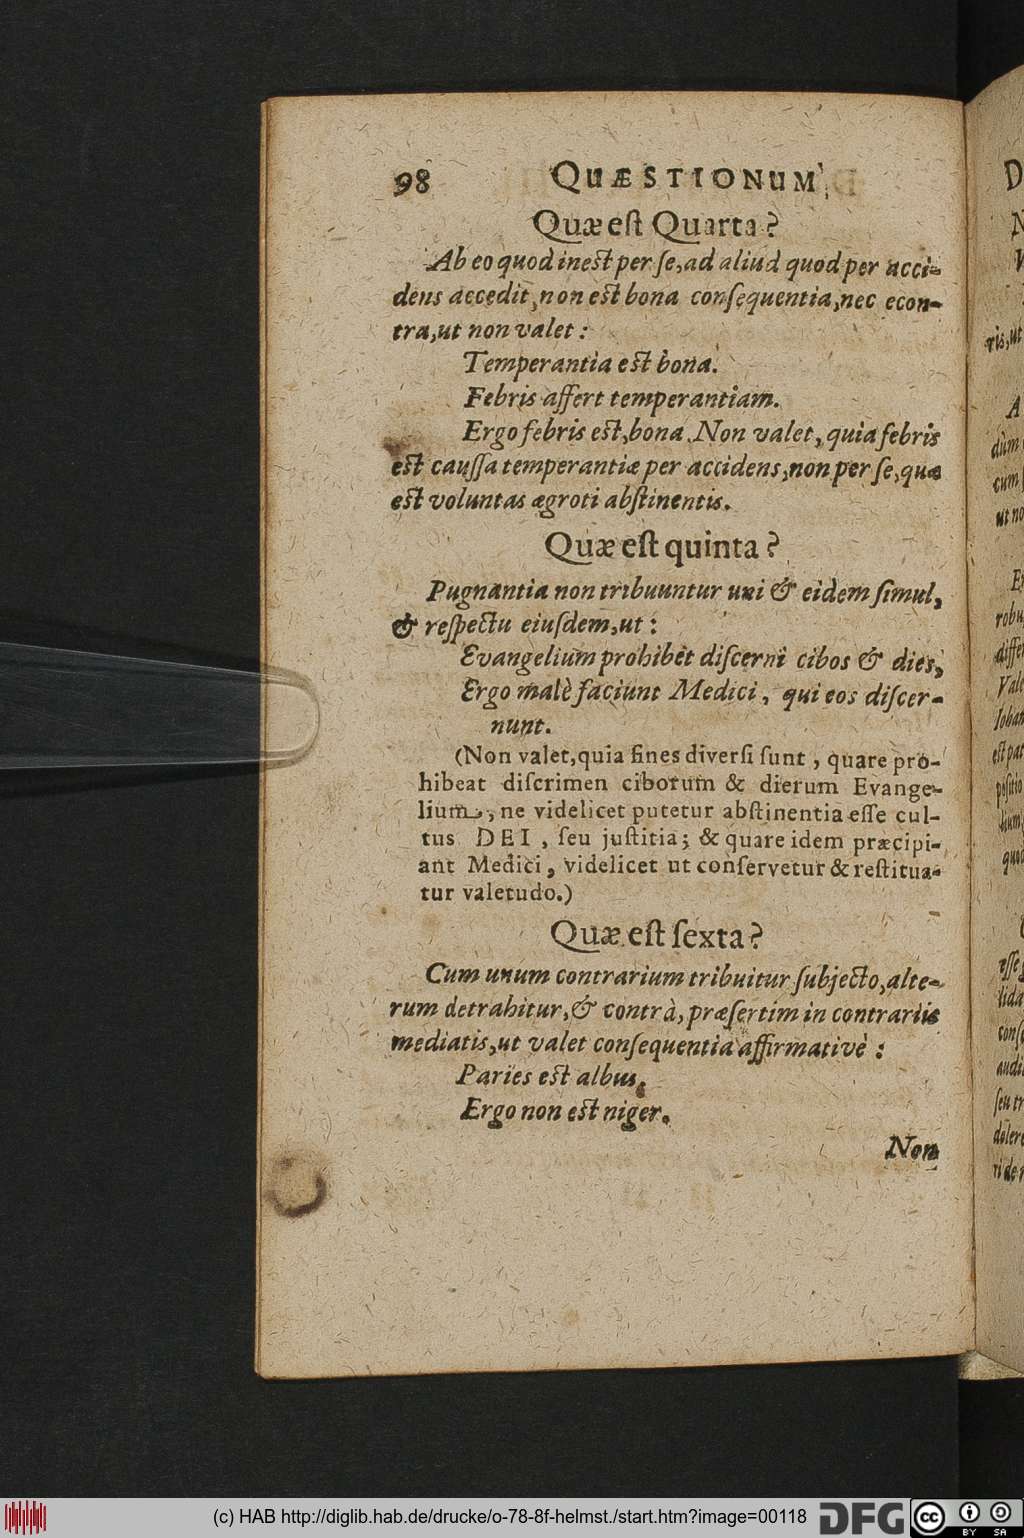 98 QUÆSTIONUM
Quæ eſt Quarta?
Ab eo quod ineſt per ſe, ad aliud quod per acci-
dens accedit, non eſt bona conſequentia, nec econ-
tra, ut non valet:
Temperantia eſt bona.
Febris affert temperantiam.
Ergo febris eſt, bona. Non valet, quia febris
eſt cauſſa temperantiæ per accidens, non per ſe, quæ
eſt voluntas ægroti abſtinentis.
Quæ eſt quinta?
Pugnantia non tribuuntur uni & eidem ſimul,
& reſpectu eiuſdem, ut:
Evangelium prohibet diſcerni cibos & dies,
Ergo malè faciunt Medici, qui eos diſcer-
nunt.
(Non valet, quia fines diverſi ſunt, quare pro-
hibeat diſcrimen ciborum & dierum Evange-
lium, ne videlicet putetur abſtinentia eſſe cul-
tus DEI, ſeu juſtitia; & quare idem præcipi-
ant Medici, videlicet ut conſervetur & reſtitua-
tur valetudo.)
Quæ eſt ſexta?
Cum unum contrarium tribuitur ſubjecto, alte-
rum detrahitur, & contrà, præſertim in contrariis
mediatis, ut valet conſequentia affirmativè:
Paries eſt albus,
Ergo non eſt niger.
Non
(c) HAB http://diglib.hab.de/drucke/o-78-8f-helmst./start.htm?image=00118
DFG
cc BY SA